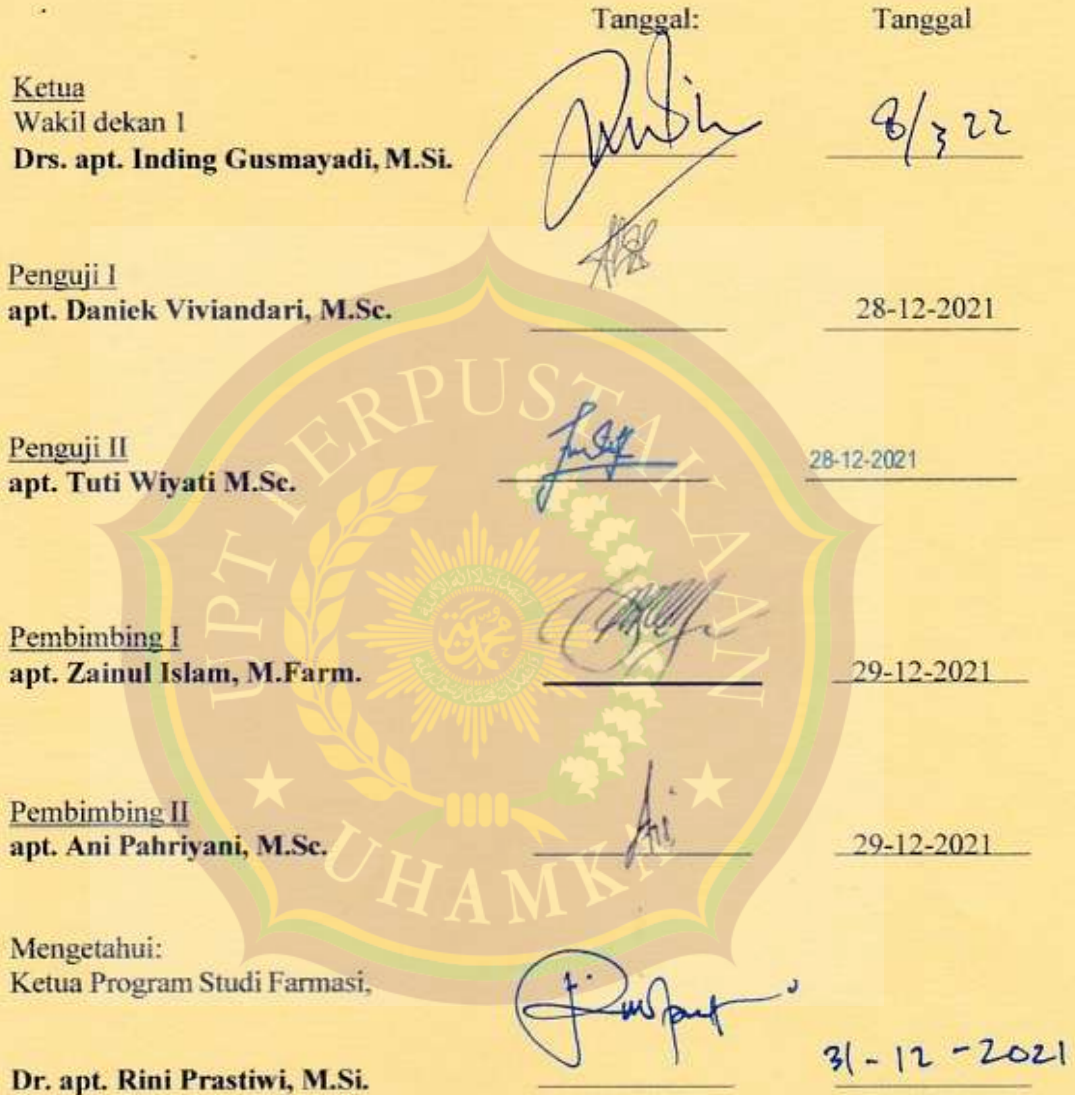 Tanggal: Tanggal
Ketua
Wakil dekan 1
Drs. apt. Inding Gusmayadi, M.Si.
8/3 22
Penguji I
apt. Daniek Viviandari, M.Sc.
28-12-2021
Penguji II
apt. Tuti Wiyati M.Sc.
28-12-2021
Pembimbing I
apt. Zainul Islam, M.Farm.
29-12-2021
Pembimbing II
apt. Ani Pahriyani, M.Sc.
Ani
29-12-2021
Mengetahui:
Ketua Program Studi Farmasi,
Dr. apt. Rini Prastiwi, M.Si.
31-12-2021
UPT PERPUSTAKAAN
UHAMKA